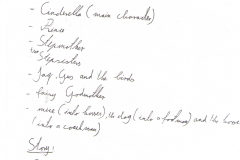 - Cinderella (main character)
- Prince
- Stepmother
- Stepsisters
- Jaq, Gus and the birds
- fairy Godmother
- mice (into horses), the dog (into a footman) and the horse
(into a coachman)
Story: